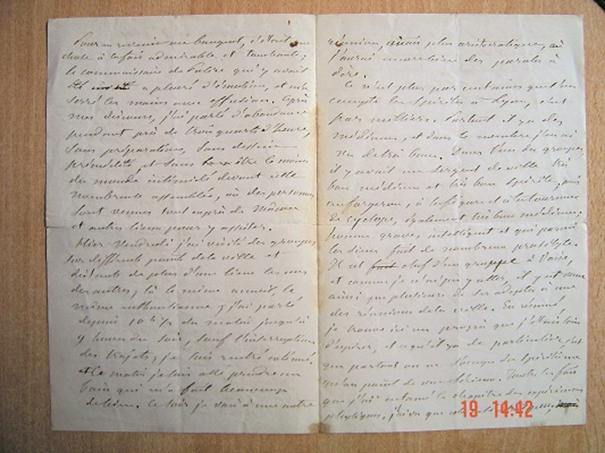 Pour en revenir au banquet, c'était une
chose à la fois admirable et touchante;
le commissaire de police qui y avait
été a pleuré d'émotion, et m'a
serré les mains avec effusion. Après
mes discours, j'ai parlé d'abondance
pendant près de trois quarts d'heure,
sans préparation, sans dessein
prémédité et sans être le moins
du monde intimidé devant cette
nombreuse assemblée, où des personnes
sont venues tout exprès de
et autres lieux pour y assister.
Hier Vendredi j'ai visité des groupes
sur différents points de la ville et
distants de plus d'une lieue les uns
des autres; là le même accueil, le
même enthousiasme; j'ai parlé
depuis 10 h ½ du matin jusqu'à
heures du soir, sauf l'interruption
des trajets; je suis rentré
Ce matin je suis allé prendre un
bain qui m'a fait beaucoup
de bien. Ce soir je vais à une autre
réunion, plus aristocratique, où
des paroles à
Ce n'est plus par centaines qu'on
compte les Spirites à Lyon, c'est
par milliers. Partout il y a des
médiums, et dans le nombre j'en ai
vu de très bons. Dans l'un des groupes,
il y avait un sergent de ville très
bon médium et très bon Spirite; puis
un forgeron, à la figure et à la tournure
de cyclope, également très bon médium;
homme grave, intelligent et qui parmi
les siens fait de nombreux prosélytes.
Il est chef d'un groupe à Vaise,
et comme je n'ai pu y aller, il y est venu
ainsi que plusieurs de ses adeptes à une
des réunions de la ville. En résumé
je trouve ici un progrès que j'étais loin
d'espérer, et ce qu'il y a de particulier c'est
que partout on ne s'occupe du Spiritisme
qu'au point de vue sérieux. Toutes les fois
que j'ai entamé le chapitre des expériences
physiques, j'ai vu que cela
19 14:42